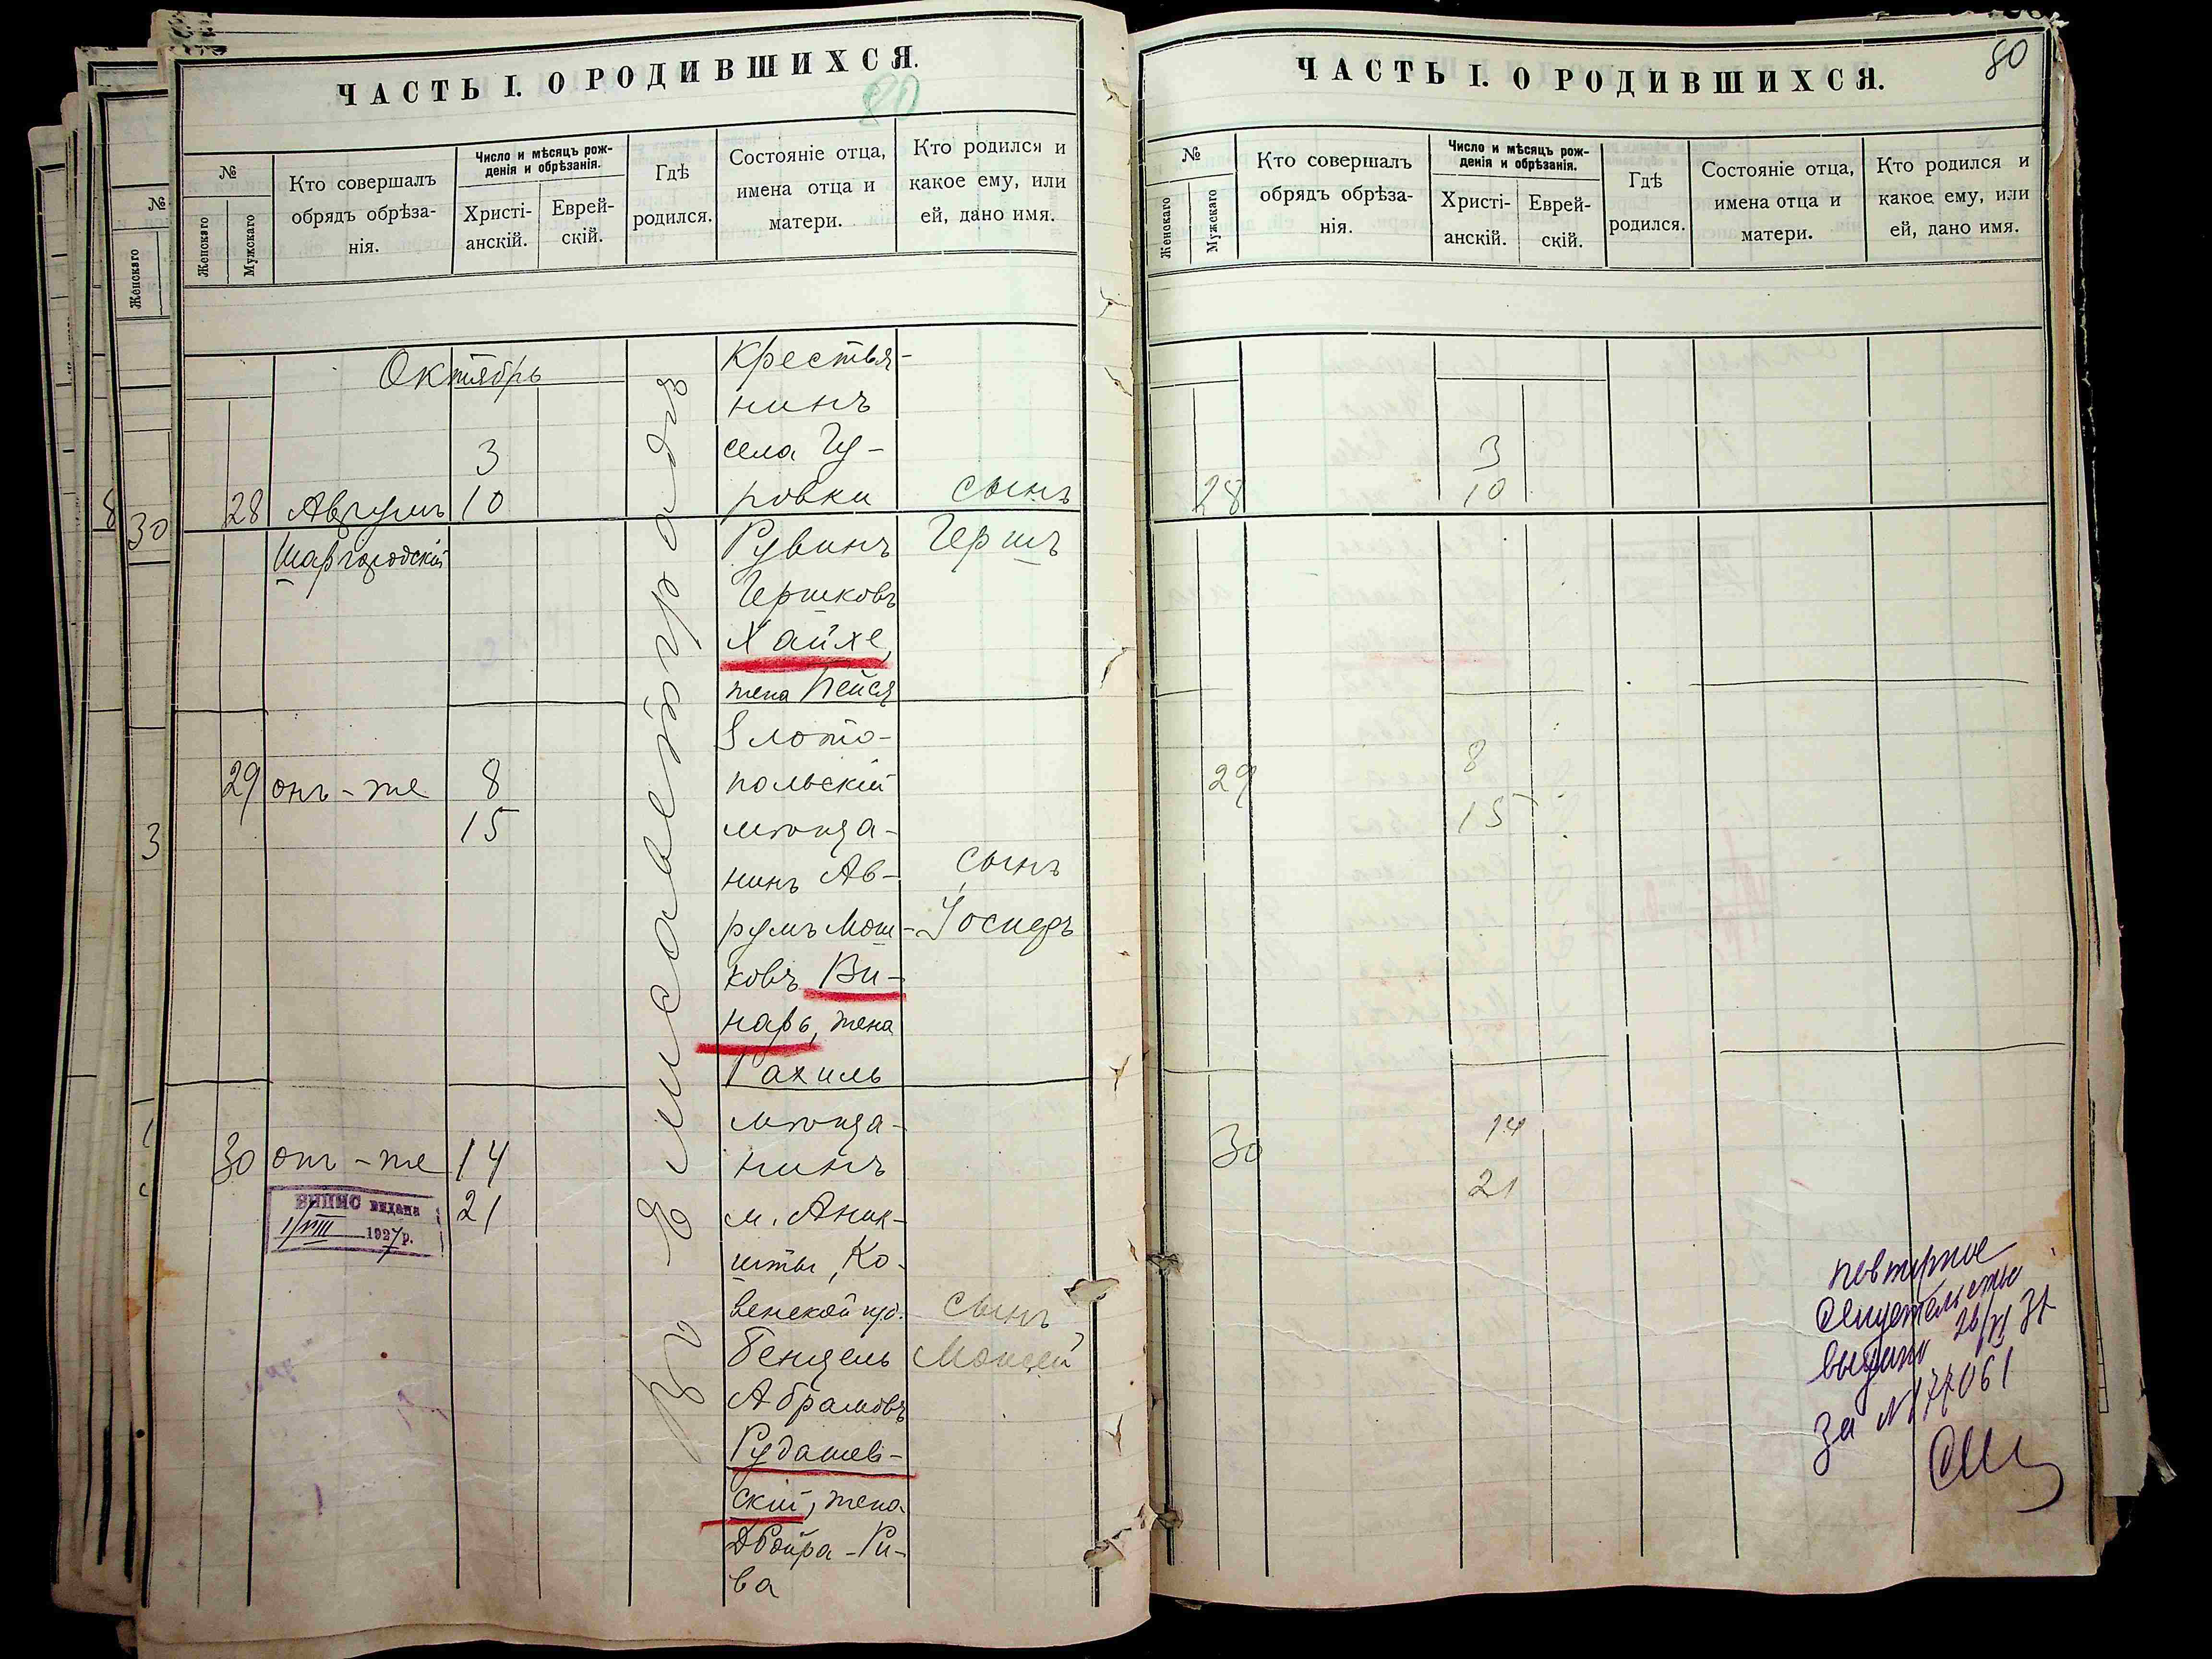 ЧАСТЬ I. О РОДИВШИХСЯ.
80
№
Женскаго
Мужскаго
Кто совершалъ
обрядъ обрѣза-
нія.
Число и мѣсяцъ рож-
денія и обрѣзанія.
Христі-
анскій.
Еврей-
скій.
Гдѣ
родился.
Состояніе отца,
имена отца и
матери.
Кто родился и
какое ему, или
ей, дано имя.
Октябрь
28
Шаргородскій
3
10
Въ Елисаветградѣ
Крестья-
нинъ
села Гу-
ровки
Рувинъ
Гершковъ
Хайхе,
жена Пейся
сынъ
Гершъ
29
онъ-же
8
15
Злото-
польскій
мѣща-
нинъ Ав-
румъ Мош-
ковъ Ви-
нарь, жена
Рахиль
сынъ
Іосифъ
30
онъ-же
ВИПИС видана
1/VIII 1927р.
14
21
мѣща-
нинъ
м. Аник-
шты, Ко-
венской губ.
Бенцель
Абрамовъ
Рудашев-
скій, жена
Двойра-Ри-
ва
сынъ
Моисей
№
Женскаго
30
3
ЧАСТЬ I. О РОДИВШИХСЯ.
80
№
Женскаго
Мужскаго
Кто совершалъ
обрядъ обрѣза-
нія.
Число и мѣсяцъ рож-
денія и обрѣзанія.
Христі-
анскій.
Еврей-
скій.
Гдѣ
родился.
Состояніе отца,
имена отца и
матери.
Кто родился и
какое ему, или
ей, дано имя.
28
3
10
29
8
15
30
14
21
повторное
свидетельство
выдано
за №177061